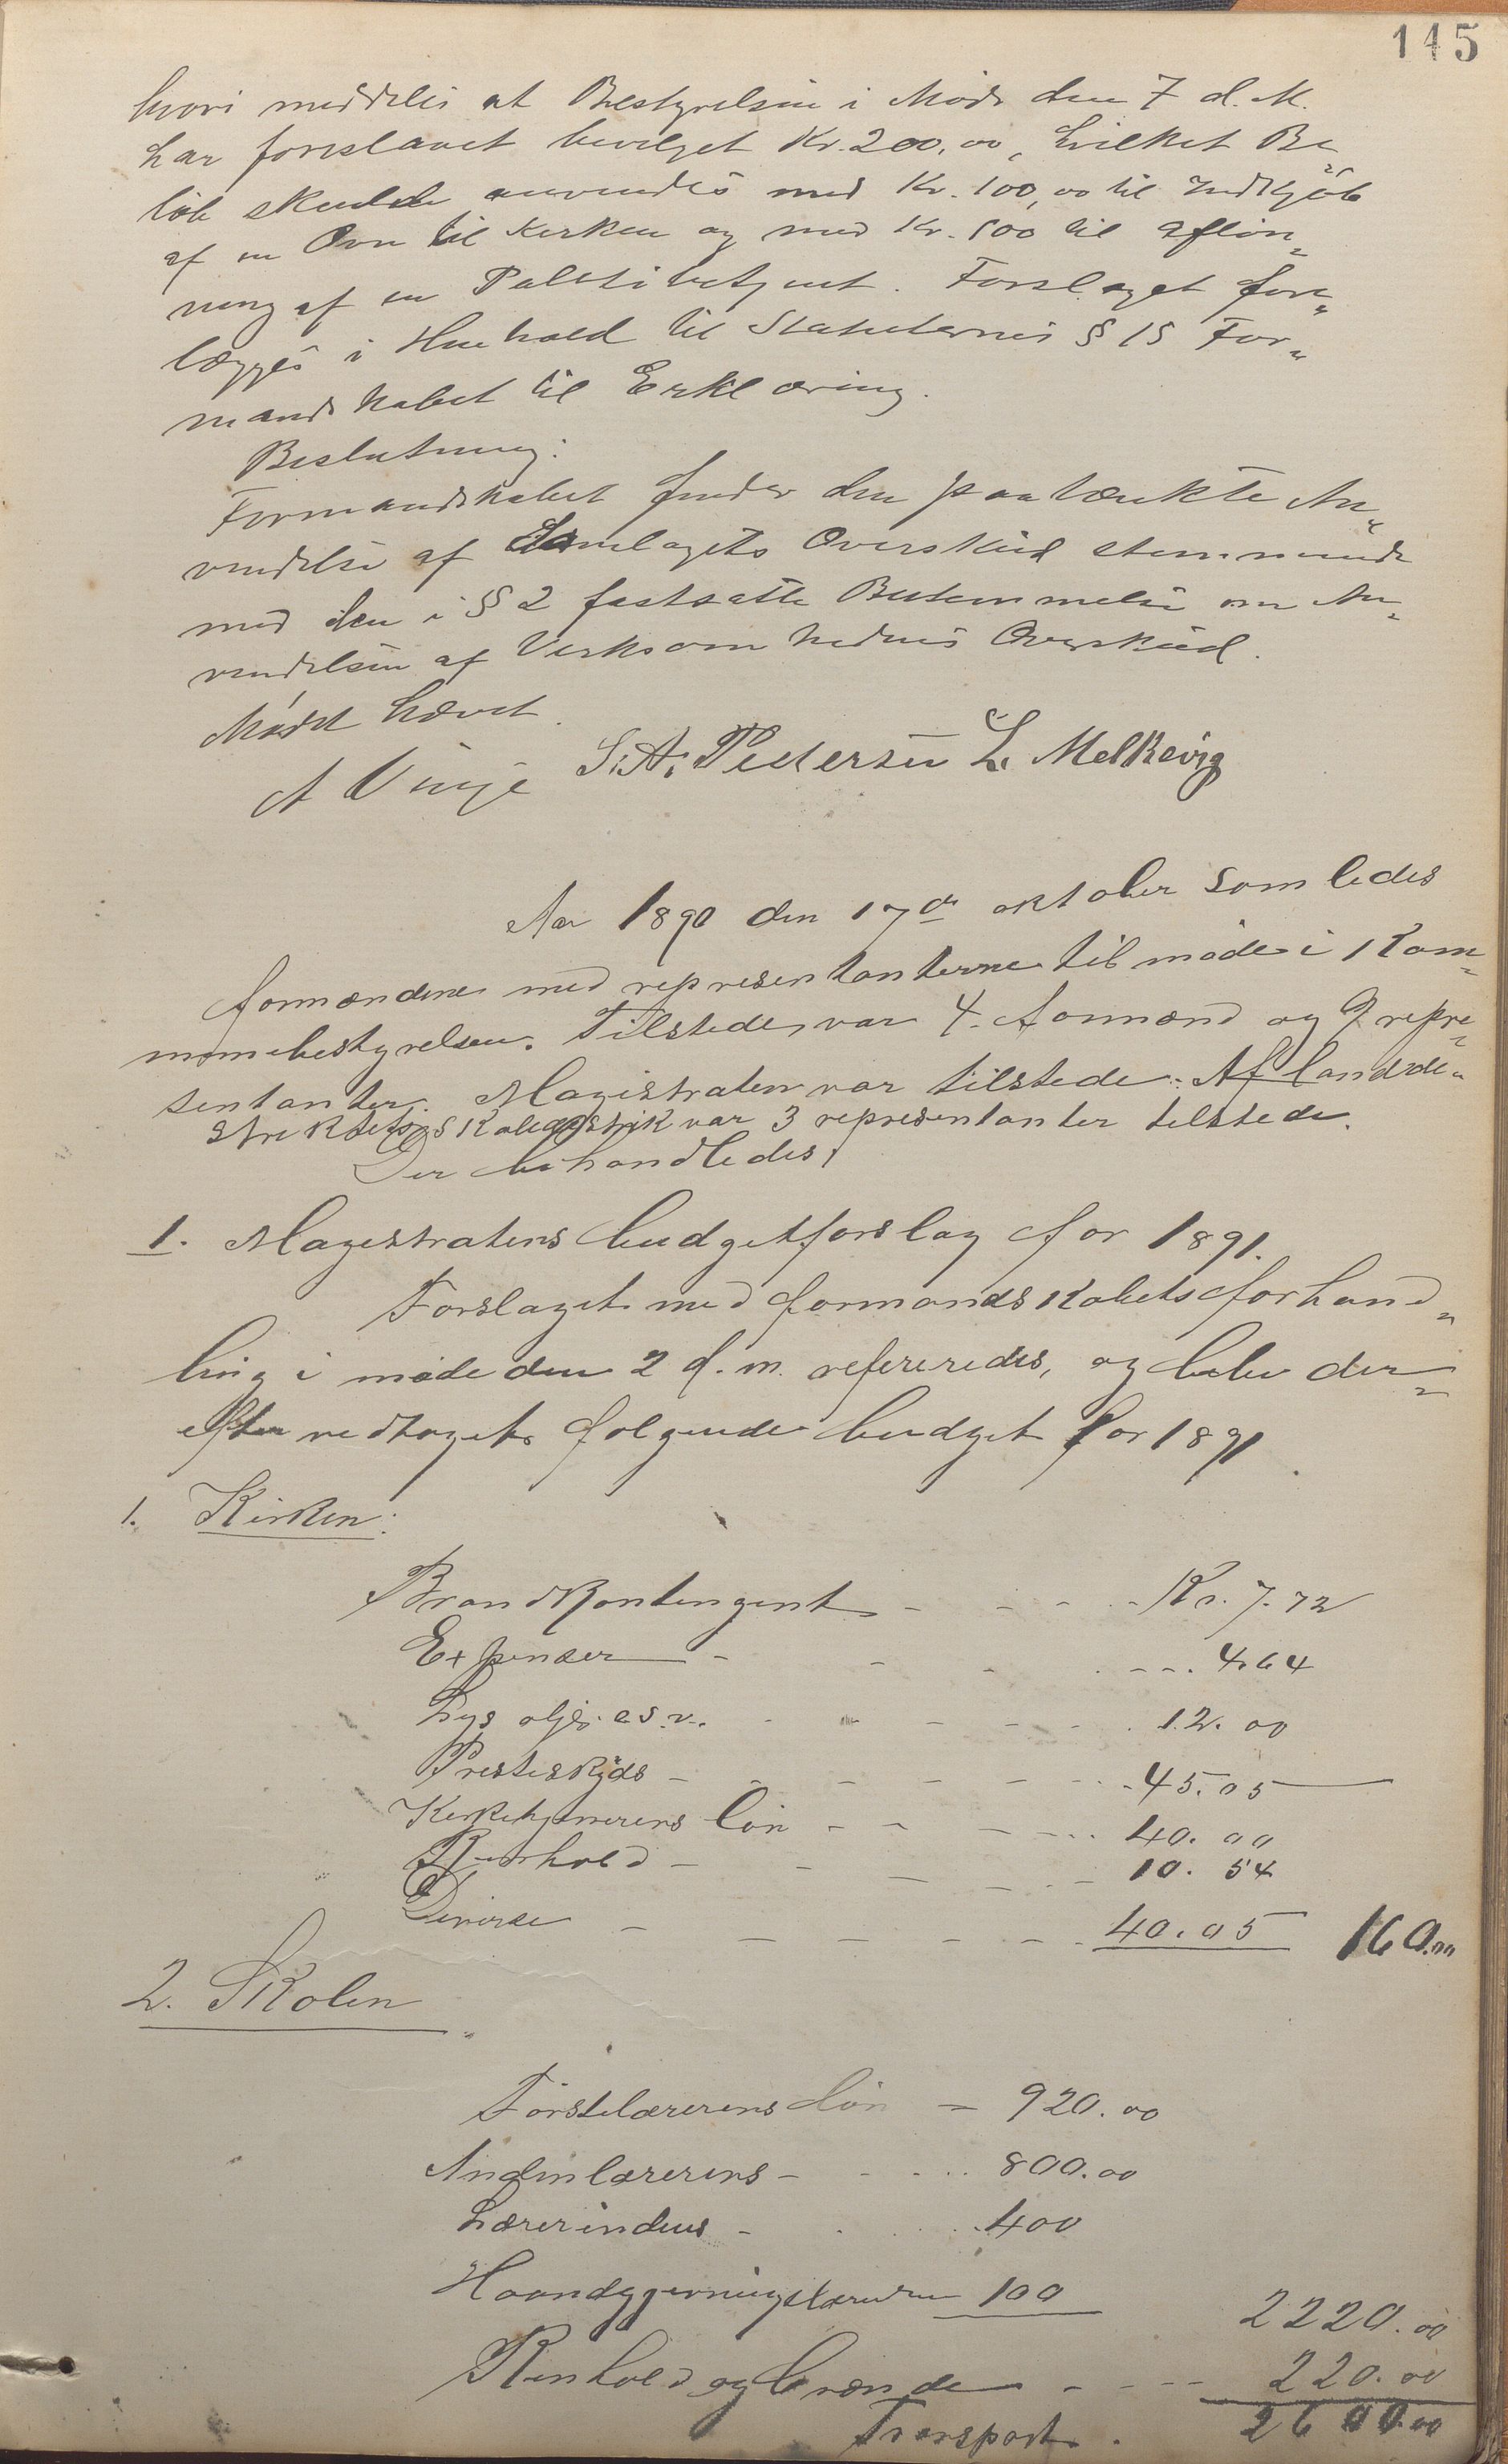 145
hvori meddeles at Bestyrelsen i Møde den 7 d. M.
har foreslaaet bevilget Kr. 200,00, hvilket Be„
løb skulde anvendes med Kr. 100,00 til Indkjøb
af en Ovn til Kirken og med Kr. 100 til Afløn„
ning af en Politibetjent. Forslaget fore„
lægges i Henhold til Statuternes § 15 For„
mandskabet til Erklæring.
Beslutning:
Formandskabet finder den paatænkte An„
vendelse af Samlagets Overskud stemmende
med den i § 2 fastsatte Bestemmelse om An„
vendelsen af Virksomhedens Overskud.
Mødet hævet.
A Vinje S. A. Pedersen L. Melkevig
Aar 1890 den 17de oktober samledes
formændene med representanterne til møde i Kom„
munebestyrelsen. Tilstede var 4. formænd og 9 repre„
sentanter. Magistraten var tilstede. Af landdi„
striktets skoledistrik var 3 representanter tilstede.
Der behandledes,
1. Magistratens budgetforslag for 1891.
Forslaget med formandskabets forhand„
ling i møde den 2 d. m. refereredes, og blev der„
efter vedtaget følgende budget for 1891.
1. Kirken:
Brandkontingent - - - - Kr. 7.72
Expenser - - - - - - 4.64
Lys olje. e.s.v. - - - - - 12.00
Presteskyds - - - - - - 45.05
Kirketjenerens løn - - - - - 40.00
Renhold - - - - - 10.54
Diverse - - - - - - 40.05 160.00
2. Skolen
Førstelærerens løn - 920.00
Andenlærerens - - - - 800.00
Lærerindens - - - 400
Haandgjerningslærerinden 100 2220.00
Renhold og brænde - - - - 220.00
Transport . 2600.00